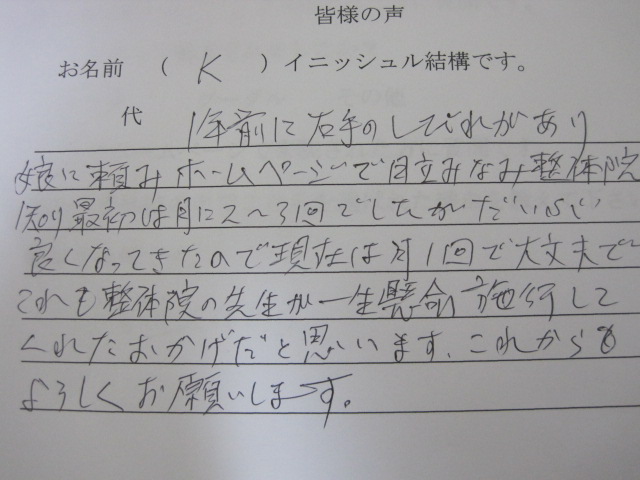 皆様の声
お名前 （ K ）イニッシュル結構です。
代 1年前に右手のしびれがあり
娘に頼みホームページで日立みなみ整体院
知り最初は月に2～3回でしたがだいぶ
良くなってきたので現在は月1回で大丈夫で
これも整体院の先生が一生懸命施術して
くれたおかげだと思います。これからも
よろしくお願いします。